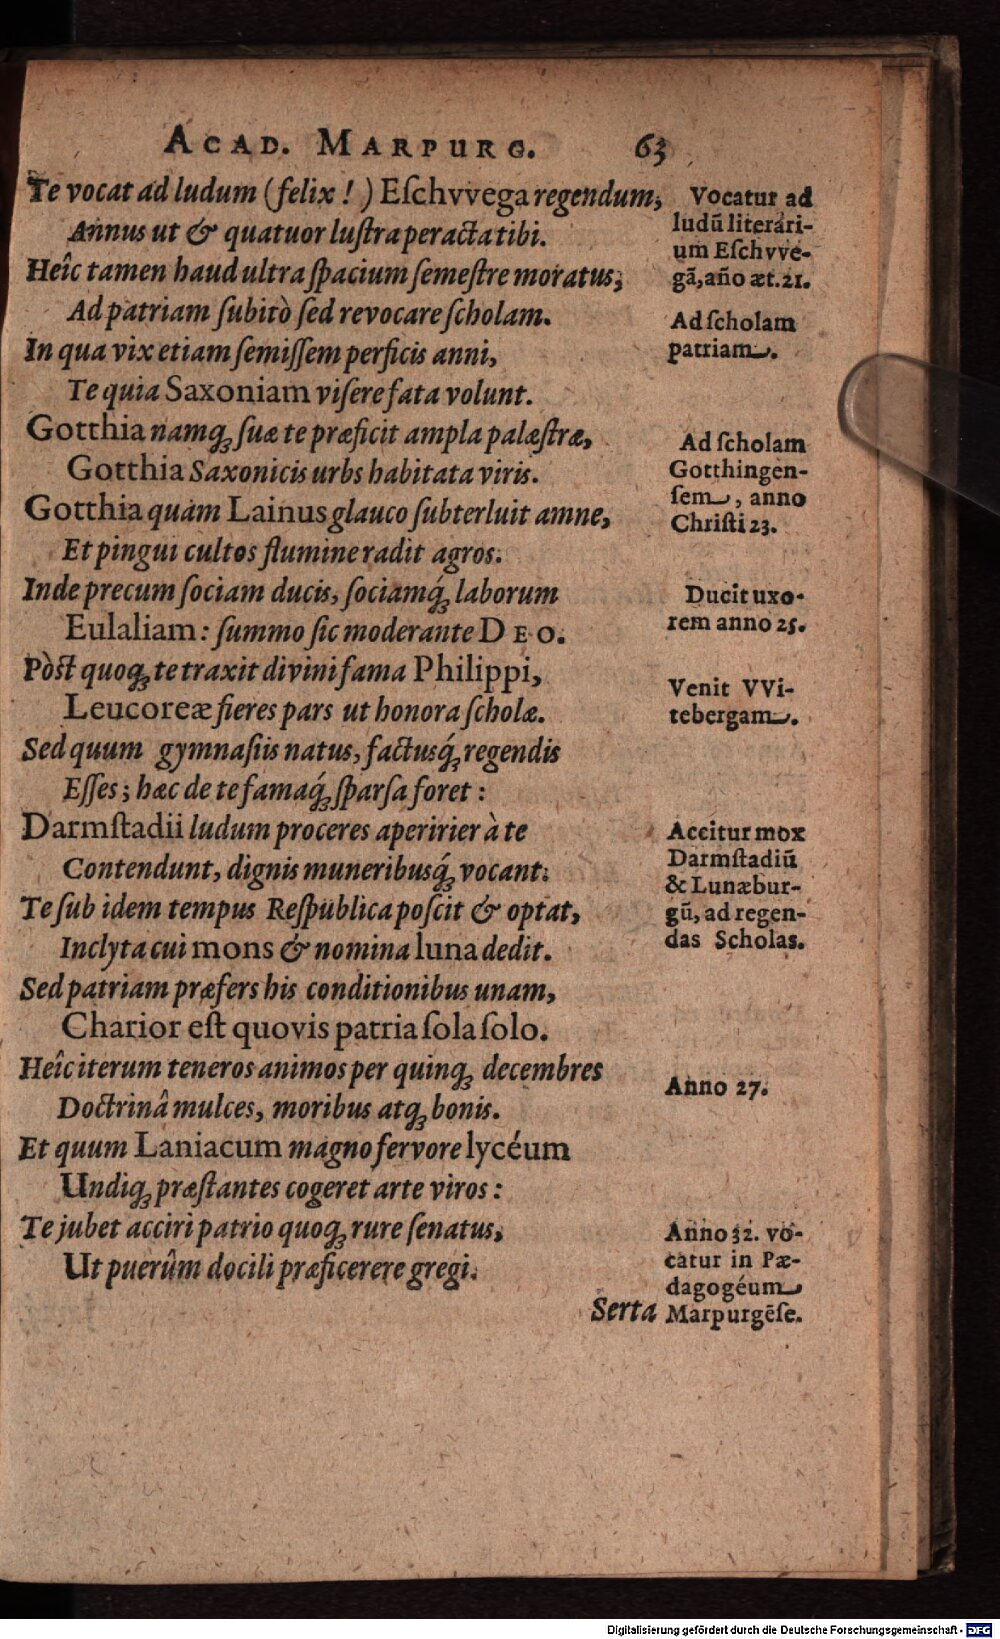 ACAD. MARPURG. 63
Te vocat ad ludum (felix!) Eſchvvega regendum;
Annus ut & quatuor luſtra peracta tibi.
Heîc tamen haud ultra ſpacium ſemeſtre moratus;
Ad patriam ſubitò ſed revocare ſcholam.
In qua vix etiam ſemiſſem perficis anni,
Te quia Saxoniam viſere fata volunt.
Gotthia namq́ꝫ ſuæ te præficit ampla palæſtræ,
Gotthia Saxonicis urbs habitata viris.
Gotthia quam Lainus glauco ſubterluit amne,
Et pingui cultos flumine radit agros.
Inde precum ſociam ducis, ſociamq́ꝫ laborum
Eulaliam: ſummo ſic moderante DEO.
Pòſt quoqꝫ te traxit divini fama Philippi,
Leucoreæ fieres pars ut honora ſcholæ.
Sed quum gymnaſiis natus, factusq́ꝫ regendis
Eſſes; hæc de te famaq́ꝫ ſparſa foret:
Darmſtadii ludum proceres aperirier à te
Contendunt, dignis muneribusq́ꝫ vocant.
Te ſub idem tempus Reſpublica poſcit & optat,
Inclyta cui mons & nomina luna dedit.
Sed patriam præfers his conditionibus unam,
Charior eſt quovis patria ſola ſolo.
Heîc iterum teneros animos per quinqꝫ decembres
Doctrinâ mulces, moribus atqꝫ bonis.
Et quum Laniacum magno fervore lycéum
Undiqꝫ præſtantes cogeret arte viros:
Te jubet acciri patrio quoqꝫ rure ſenatus,
Ut puerûm docili præficerere gregi.
Serta
Vocatur ad
ludū literari-
um Eſchvve-
gā, año æt. 21.
Ad ſcholam
patriam.
Ad ſcholam
Gotthingen-
ſem, anno
Chriſti 23.
Ducit uxo-
rem anno 25.
Venit VVi-
tebergam.
Accitur mox
Darmſtadiū
& Lunæbur-
gū, ad regen-
das Scholas.
Anno 27.
Anno 32. vo-
catur in Pæ-
dagogéum
Marpurgēſe.
Digitalisierung gefördert durch die Deutsche Forschungsgemeinschaft - DFG